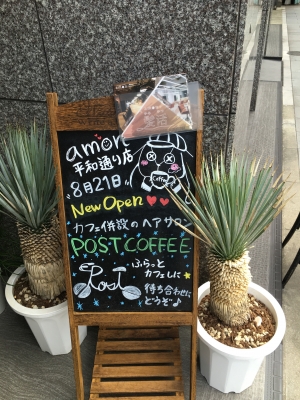 amor
平和通り店
8月21日
New Open
Coffee
カフェ併設のヘアサロン
POST COFFEE
Post
ふらっと
カフェしに
待ち合わせに
どうぞ♪